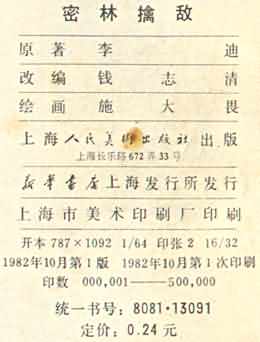 密林擒敌
原著 李迪
改编 钱志清
绘画 施大畏
上海人民美术出版社出版
上海长乐路672弄33号
新华书店上海发行所发行
上海市美术印刷厂印刷
开本 787×1092 1/64 印张 2 16/32
1982年10月第1版 1982年10月第1次印刷
印数 000,001——500,000
统一书号：8081·13091
定价：0.24元